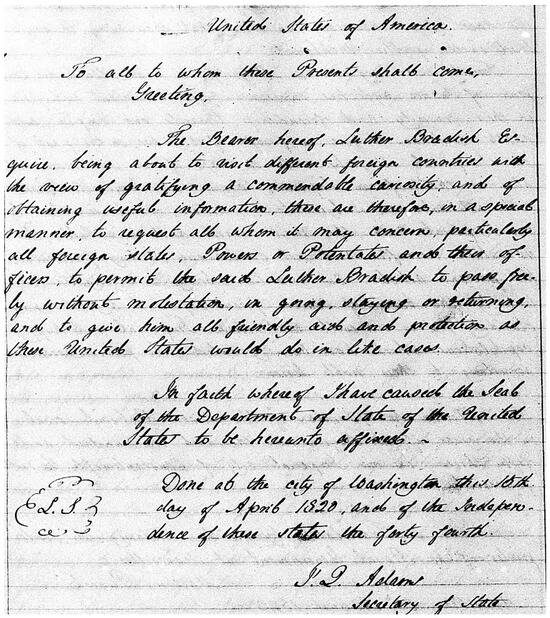 United States of America.
To all to whom these Presents shall come,
Greeting.
The Bearer hereof, Luther Bradish Es-
quire, being about to visit different foreign countries with
the view of gratifying a commendable curiosity, and of
obtaining useful information, these are therefore, in a special
manner, to request all whom it may concern, particularly
all foreign states, Powers or Potentates and their of-
ficers, to permit the said Luther Bradish to pass free-
ly without molestation, in going, staying or returning,
and to give him all friendly aid and protection as
these United States would do in like cases.
In faith whereof I have caused the Seal
of the Department of State of the United
States to be hereunto affixed. –
Done at the city of Washington this
day of April 1820, and of the Indepen-
dence of these states the forty fourth.
L. S.
J. Q. Adams
Secretary of State